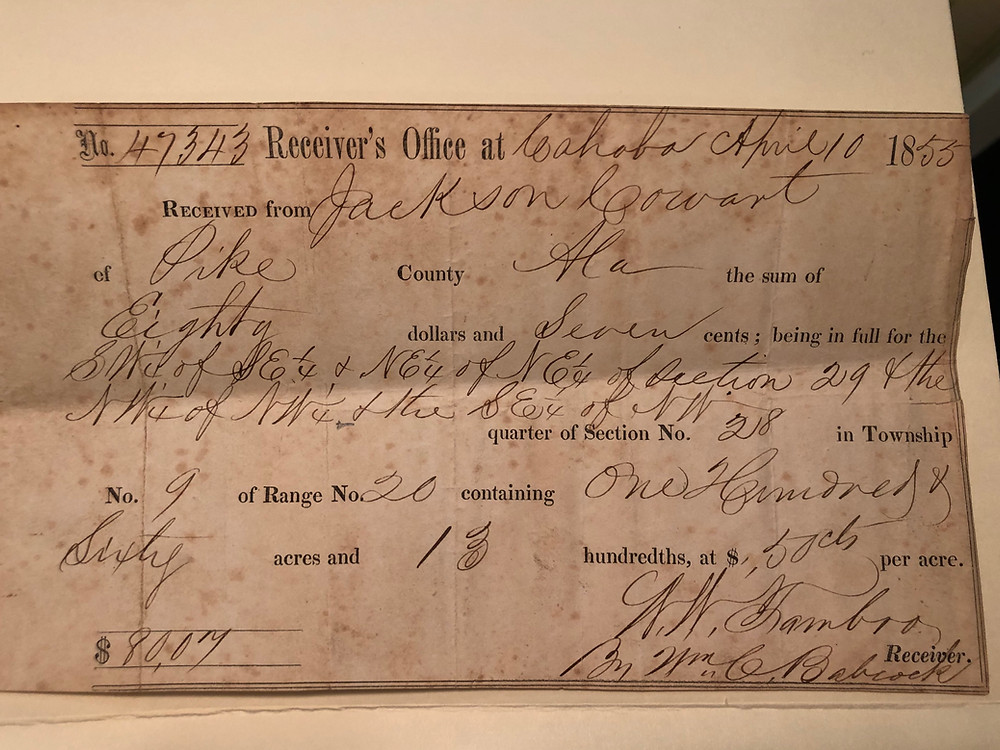 No. 47343 Receiver's Office at Cahaba April 10 1855
RECEIVED from Jackson Cowart
of Pike County Ala the sum of
Eighty dollars and Seven cents; being in full for the
SW¼ of SE¼ & NE¼ of NE¼ of section 29 & the
NW¼ of NW¼ & the SE¼ of NW
quarter of Section No. 28 in Township
No. 9 of Range No. 20 containing One Hundred &
Sixty acres and 13 hundredths, at $ .50cts per acre.
W. W. Fambro
$ 80,07 Receiver.
By Wm C. Babcock